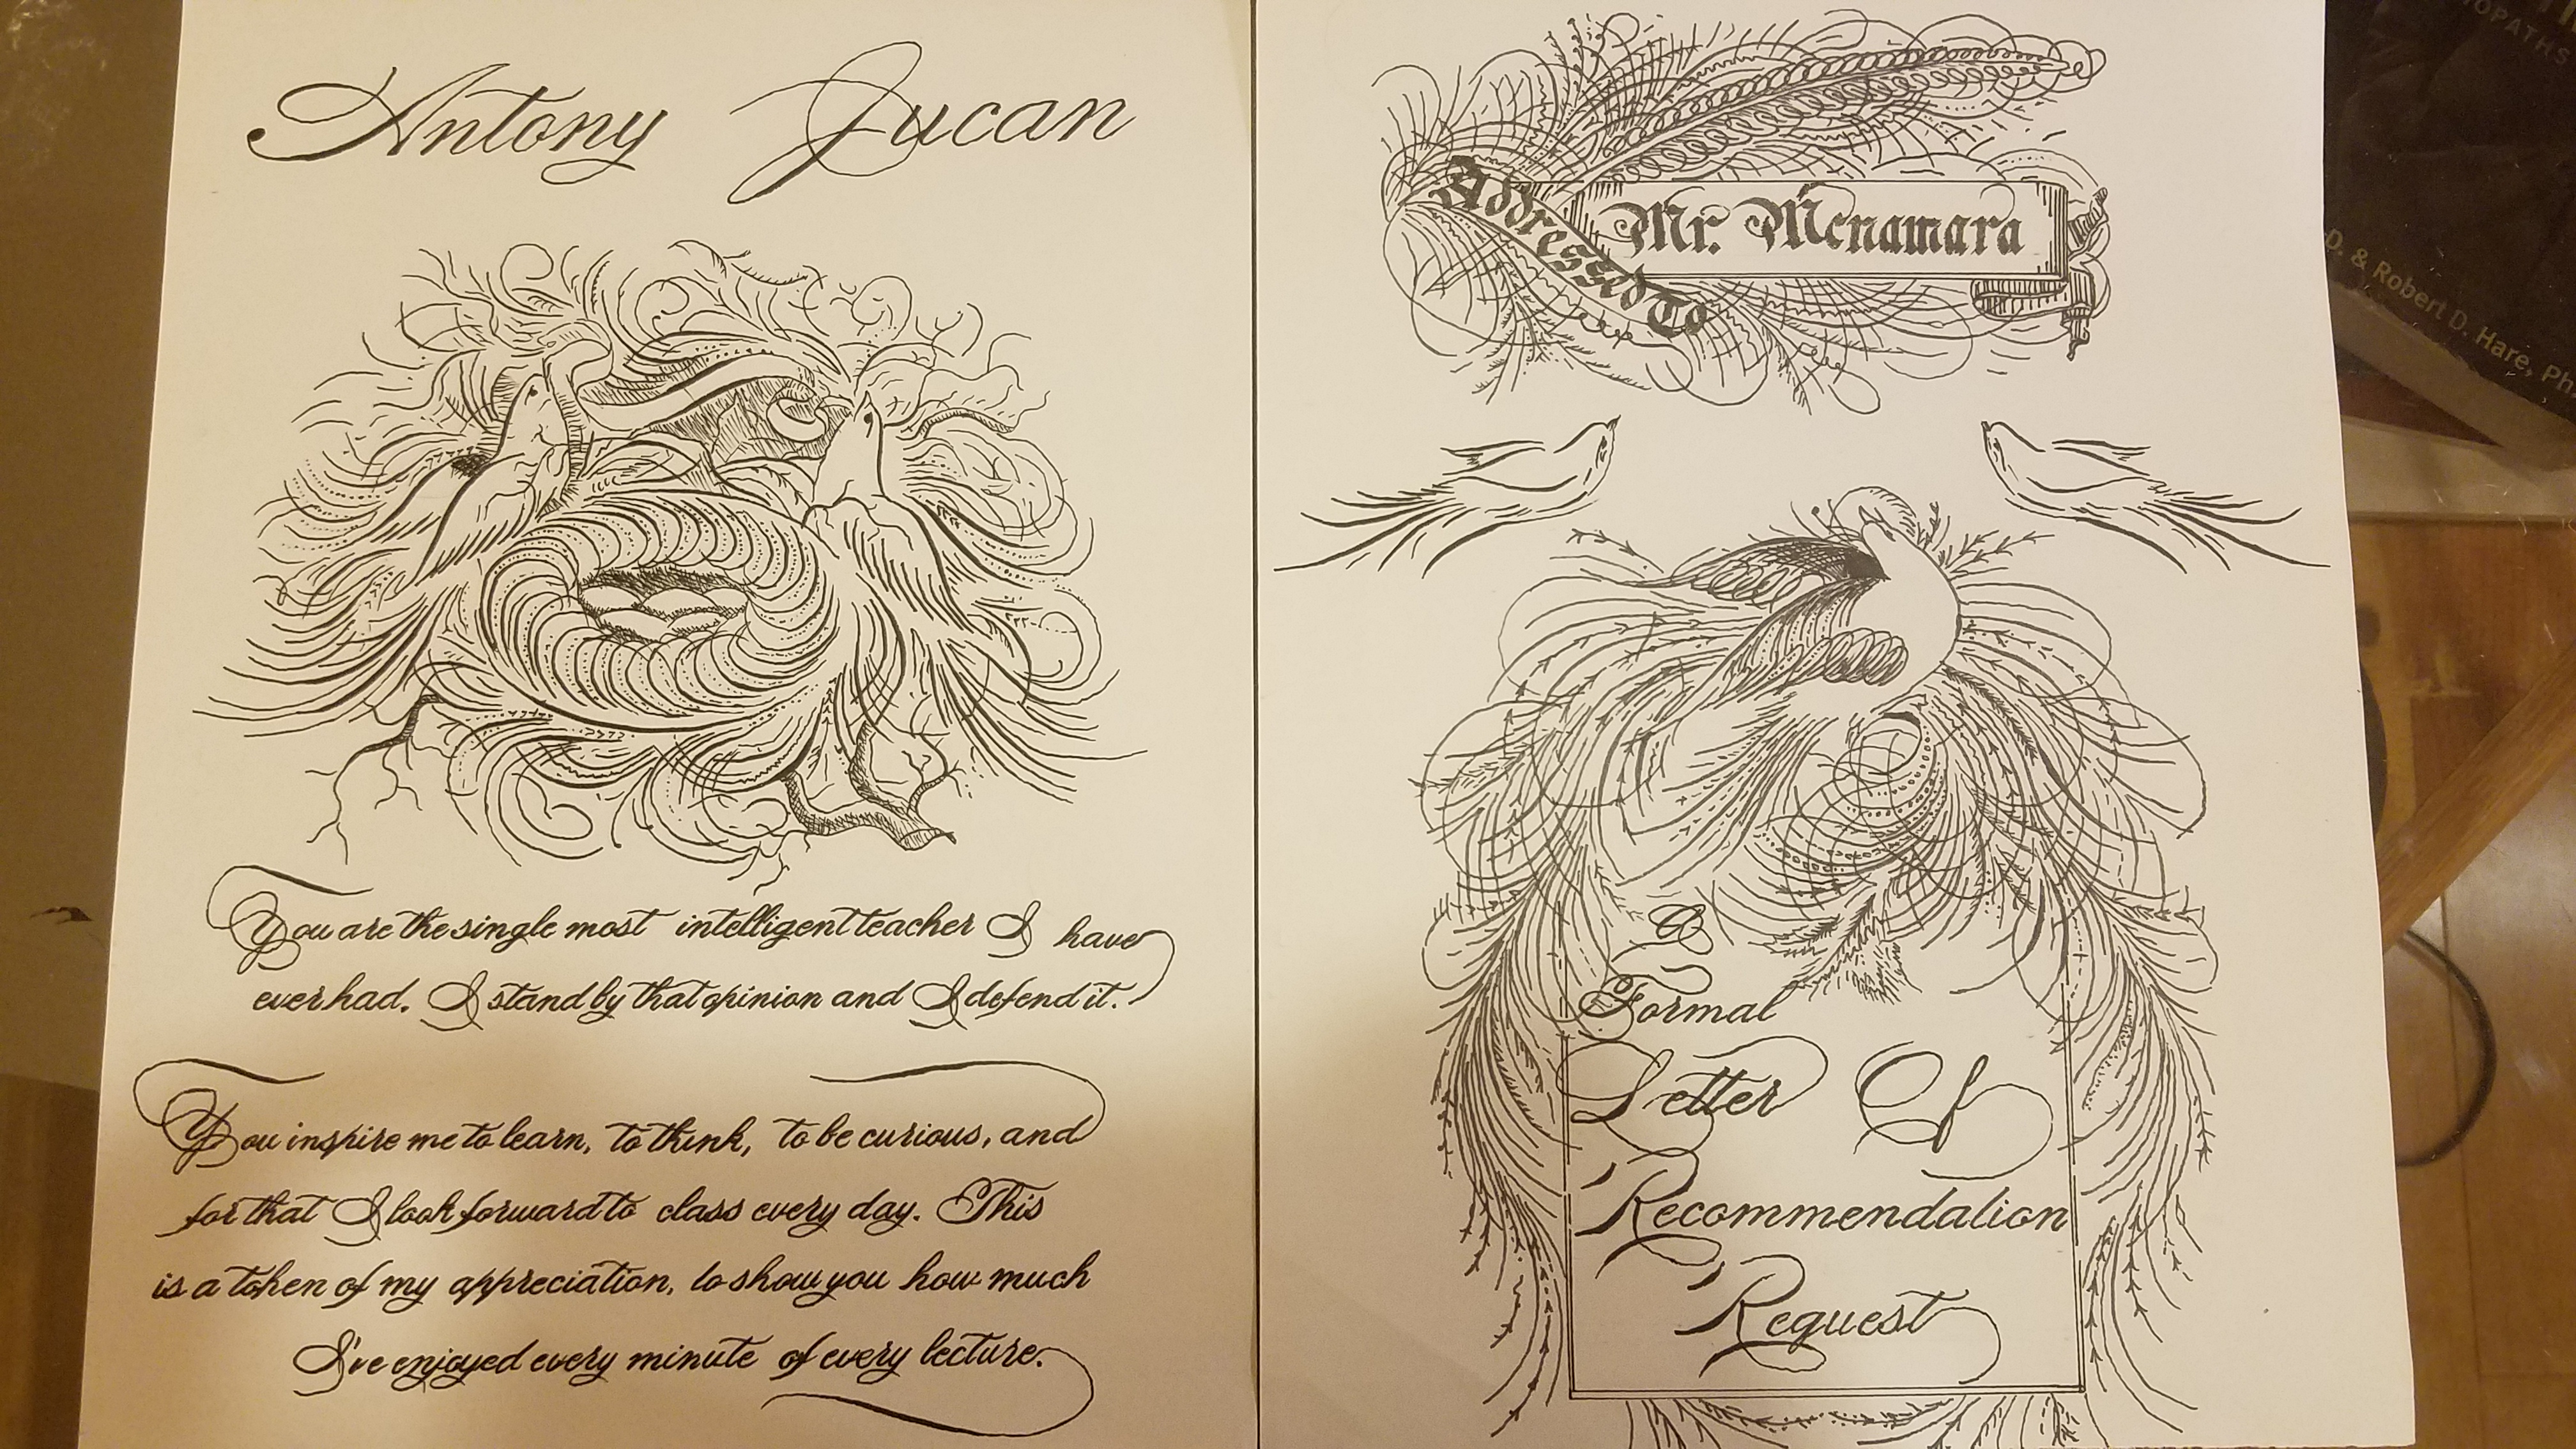 Antony Jucan
You are the single most intelligent teacher I have
ever had. I stand by that opinion and I defend it.
You inspire me to learn, to think, to be curious, and
for that I look forward to class every day. This
is a token of my appreciation, to show you how much
I've enjoyed every minute of every lecture.
Addressed To
Mr. Mcnamara
A
Formal
Letter Of
Recommendation
Request
D. & Robert D. Hare, Ph.
OPATHS